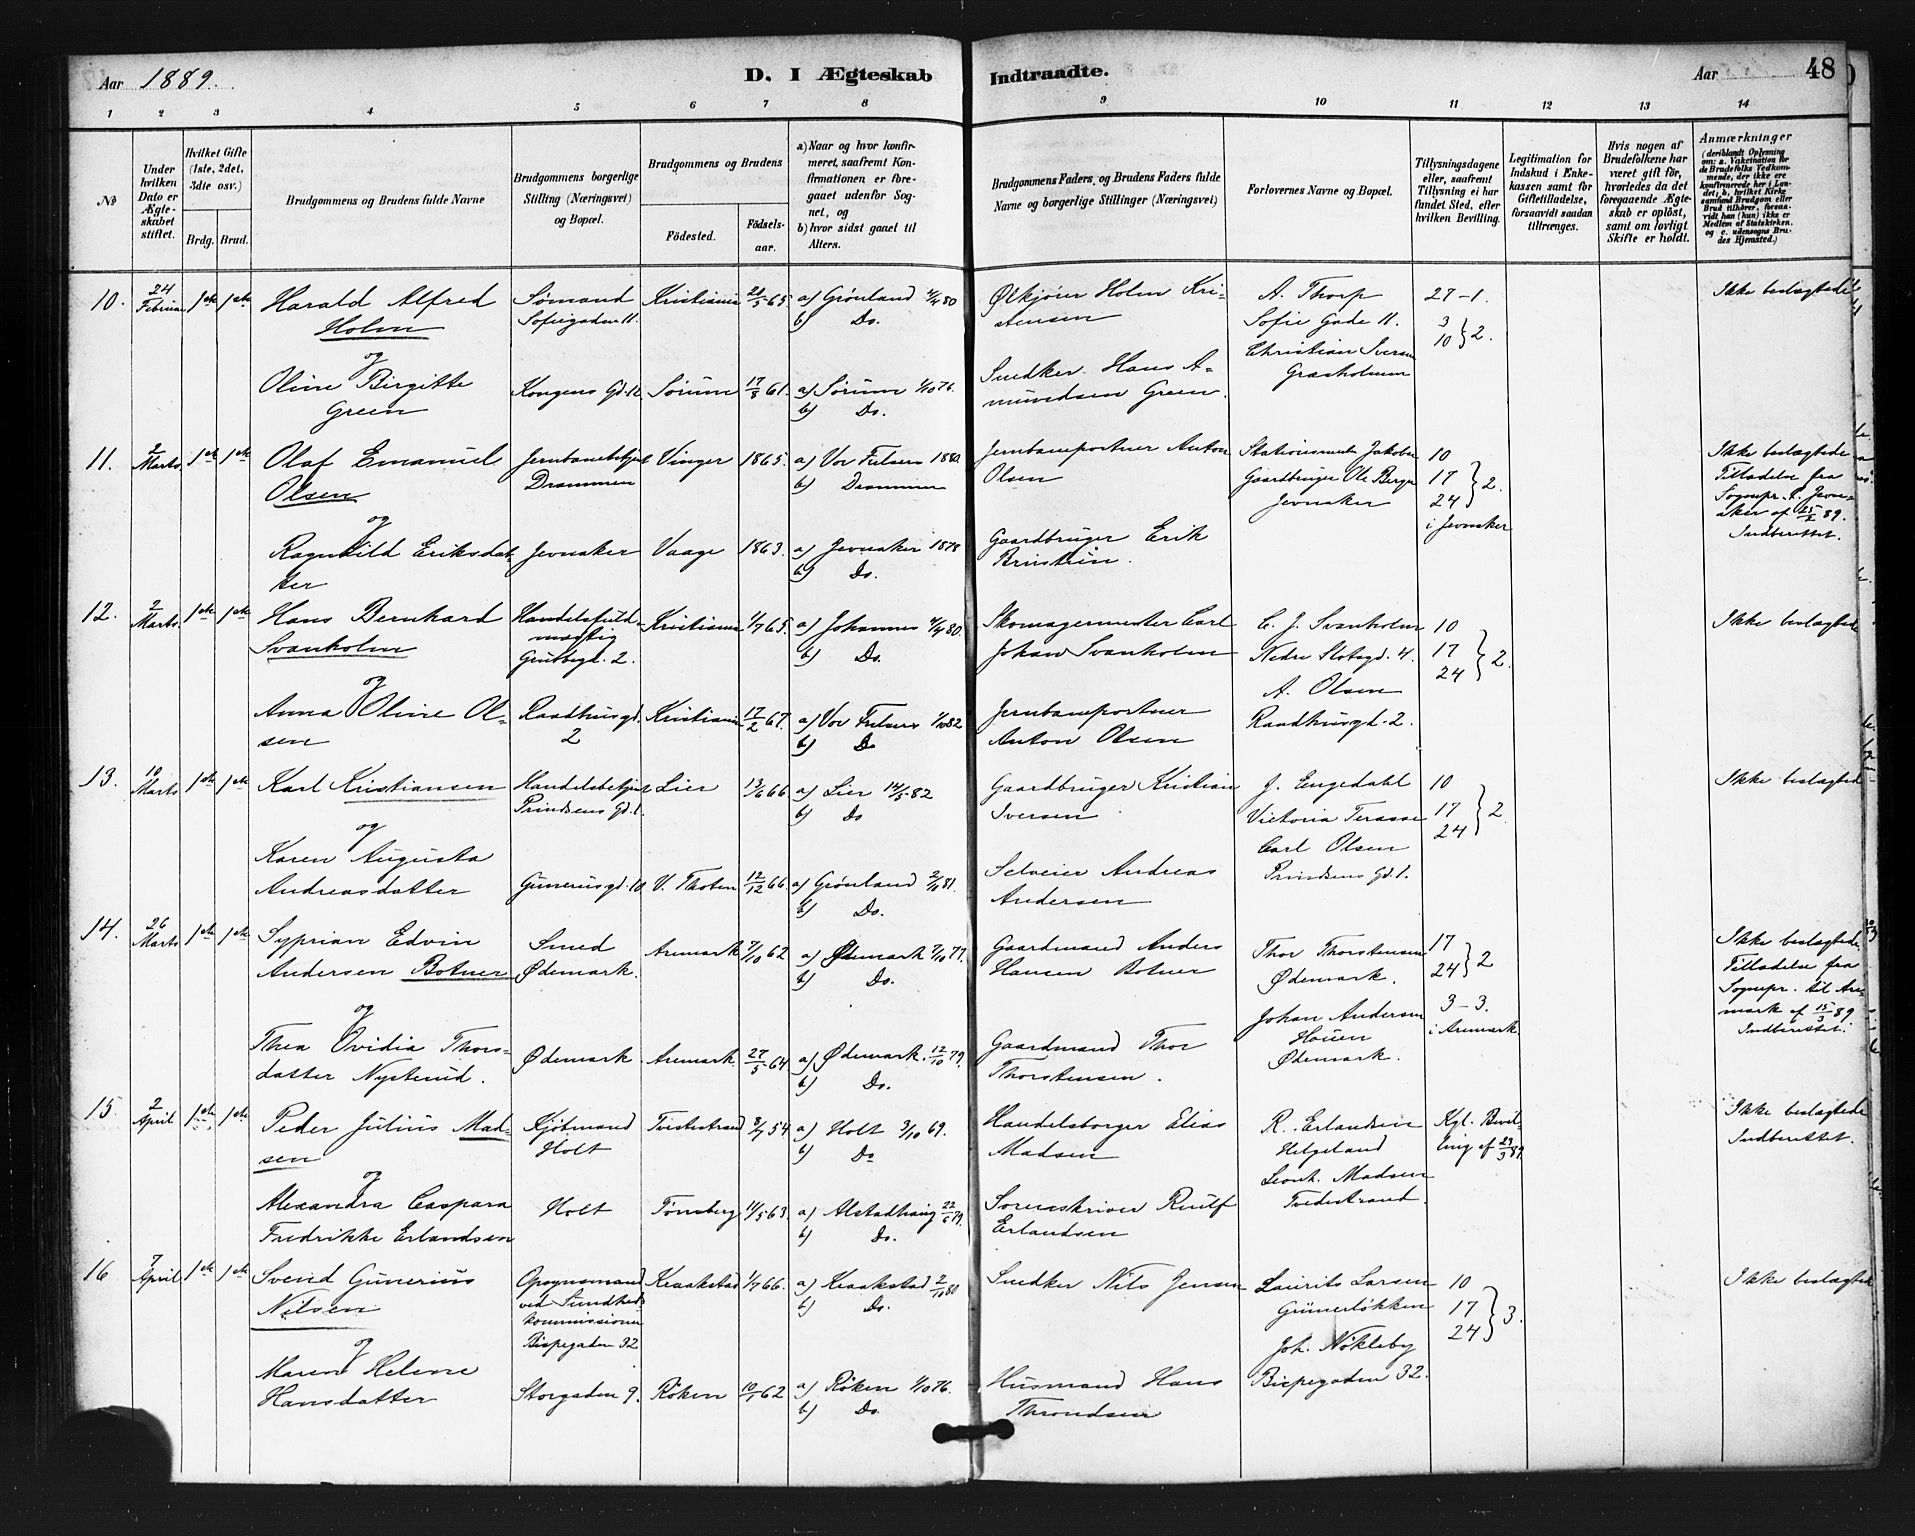 Aar 1889.
D. I Ægteskab Indtraadte.
Aar 48
1 2 3 4 5 6 7 8 9 10 11 12 13 14
No
Under hvilken Dato er Ægteskabet stiftet.
Hvilket Gifte (1ste, 2det, 3die osv.)
Brdg. Brud.
Brudgommens og Brudens fulde Navne
Brudgommens borgerlige Stilling (Næringsvei) og Bopæl.
Brudgommens og Brudens
Fødested.
Fødselsaar.
a) Naar og hvor konfirmeret, saafremt Konfirmationen er foregaaet udenfor Sognet, og
b) hvor sidst gaaet til Alters.
Brudgommens Faders, og Brudens Faders fulde Navne og borgerlige Stillinger (Næringsvei)
Forlovernes Navne og Bopæl.
Tillysningsdagene eller, saafremt Tillysning ei har fundet Sted, efter hvilken Bevilling.
Legitimation for Indskud i Enkekassen samt for Giftetilladelse, forsaavidt saadan tiltrænges.
Hvis nogen af Brudefolkene har været gift før, hvorledes da det foregaaende Ægteskab er opløst, samt om lovligt Skifte er holdt.
Anmærkninger
(deriblandt Oplysning om: a. Vakcination for de Brudefolks Vedkommende, der ikke ere konfirmerede her i Landet; b. hvilket Kirkesamfund Brudgom eller Brud tilhører, forsaavidt han (hun) ikke er Medlem af Statskirken, og c. udensogns Brudes Hjemsted.)
10. 24 Februar 1ste 1ste Harald Alfred Sømand Kristiania 5/65. a) Grønland 4/4 80 Ølkjører Holm Kri- A. Thorp 27-1. Ikke beslægtede
Holm Sofiegaden 11. b) Do. stensen Sofie Gade 11. 3
og 10 } 2. Christian Iversen
Oline Birgitte Kongens Gd. 12 Sørum 17/8 61. a) Sørum 1/10 76. Snedker Hans A- Græsholmen
Green b) Do. mundsen Green.
11. 2 Marts 1ste 1ste Olaf Emanuel Jernbanebetjent Vinger 1865. a) Vor Frelsers 1880. Jernbaneportner Anton Stationsmester Jakobsen 10 Ikke beslægtede
Olsen Drammen b) Drammen Olsen Gaardbruger Ole Berge 17 } 2. Tilladelse fra
og Jevnaker 24 Sognepr. t. Jevn-
i Jevnaker aker af 25/2 89.
Ragnhild Eriksdat- Jevnaker Vaage 1863. a) Jevnaker 1878 Gaardbruger Erik Indberettet.
ter b) Do.
12. 2 Marts. 1ste 1ste Hans Bernhard Handelsfuld- Kristiania 1/7 65. a) Johannes 4/4 80. Skomagermester Carl C. J. Svanholm 10 Ikke beslægtede
Svanholm mægtig b) Do. Johan Svanholm Nedre Slotsgd. 4. 17 } 2.
og Grubbegd. 2. A. Olsen 24
Anna Oline Ol- Raadhusgd. Kristiania 17/2 67. a) Vor Frelsers 1/10 82 Jernbaneportner Raadhusgd. 2.
sen 2 b) Do Anton Olsen
13. 10 Marts 1ste 1ste Karl Kristiansen Handelsbetjent Lier 13/6 66 a) Lier 14/5 82 Gaardbruger Kristian J. Engedahl 10 Ikke beslægtede
og Prindsens Gd. 1. b) Do Iversen Victoria Terasse 17 } 2.
Karen Augusta Carl Olsen 24
Andreasdatter Gunerusgd. 10 V. Thoten 12/12 66. a) Grønland 2/10 81. Selveier Andreas Prindsens Gd. 1.
b) Do. Andersen
14. 26 Marts 1ste 1ste Syprian Edvin Smed Aremark 7/10 62 a) Ødemark 7/10 77. Gaardmand Anders Thor Thorstensen 17 Ikke beslægtede.
Andersen Botner Ødemark. b) Do. Hansen Botner Ødemark. 24 } 2 Tilladelse fra
og Johan Andersen 3-3. Sognepr. til Are-
Thea Ovidia Thors- Ødemark Aremark. 27/5 64 a) Ødemark. 12/10 79. Gaardmand Thor Houen i Aremark. mark af 15/3 89
datter Nysterud. b) Do. Thorstensen. Ødemark. Indberettet.
15. 2 April 1ste 1ste Peder Julius Mad- Kjøbmand Tvedestrand 8/7 54 a) Holt 3/10 69. Handelsborger Elias R. Erlandsen Kgl. Bevil- Ikke beslægtede
sen Holt b) Do Madsen Helgeland ling af 23/3 89. Indberettet.
og Leonh. Madsen
Alexandra Caspara Holt Tønsberg 11/5 63. a) Alstadhaug 22/6 79. Sorenskriver Rnulf Tvedestrand.
Fredrikke Erlandsen b) Do. Erlandsen
16 7 April 1ste 1ste Svend Gunerius Opsynsmand Kraakstad 1/7 66. a) Kraakstad 2/10 80 Snedker Nils Jensen Laurits Larsen 10 Ikke beslægtede
Nilsen ved Sundheds- b) Do. Grünerløkken 17 } 3.
og kommissionen Joh. Nøkleby 24
Bispegaden 32
Maren Helene Bispegaden 32.
Hansdatter Storgaden 9. Røken 10/1 62 a) Røken 1/10 76. Husmand Hans
b) Do. Throndsen